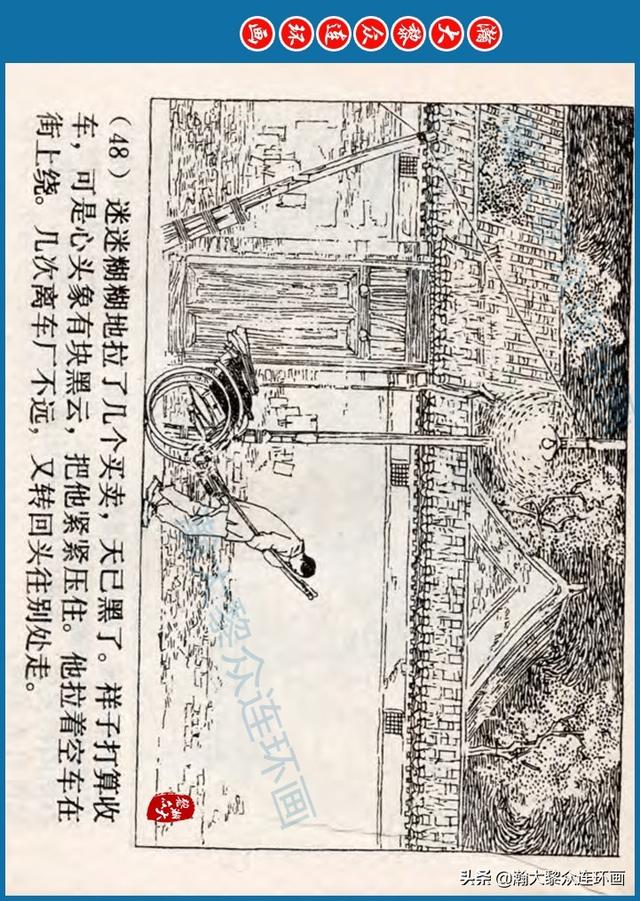 瀚大黎众连环画
(48) 迷迷糊糊地拉了几个买卖，天已黑了。祥子打算收
车，可是心头象有块黑云，把他紧紧压住。他拉着空车在
街上绕。几次离车厂不远，又转回头往别处走。
瀚大黎众连环画
瀚大黎众
头条 @瀚大黎众连环画